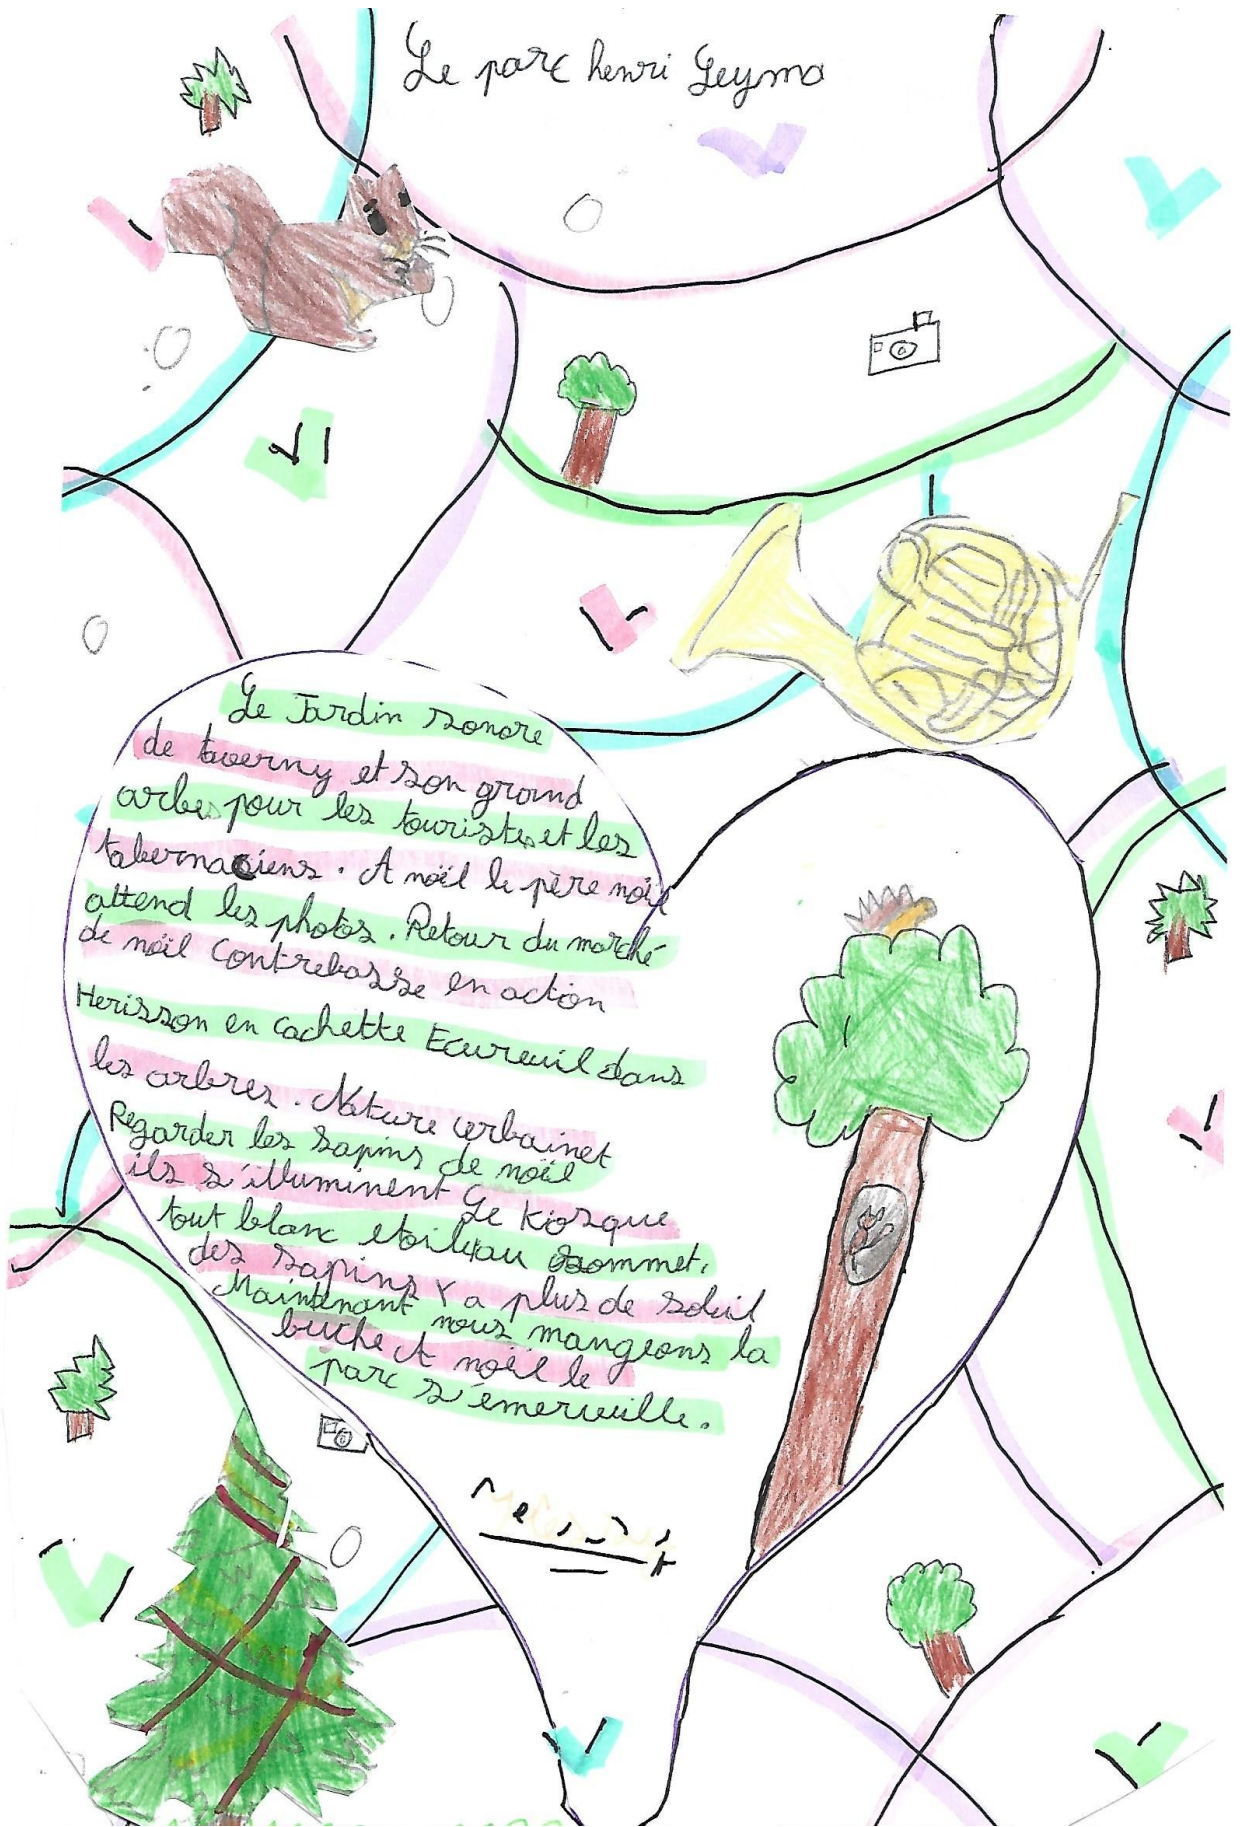 Le parc henri Leyma
Le Jardin sonore
de taverny et son grand
arbes pour les touristes et les
tabernaciens. A noël le père noël
attend les photos. Retour du marché
de noël Contrebasse en action
Herisson en cachette Ecureuil dans
les arbres. Nature urbainet
Regarder les sapins de noël
ils s'illuminent Le Kiosque
tout blanc etoileau sommet.
des sapins Y a plus de soleil
Maintenant nous mangeons la
buche A noël le
parc s'émerveille.